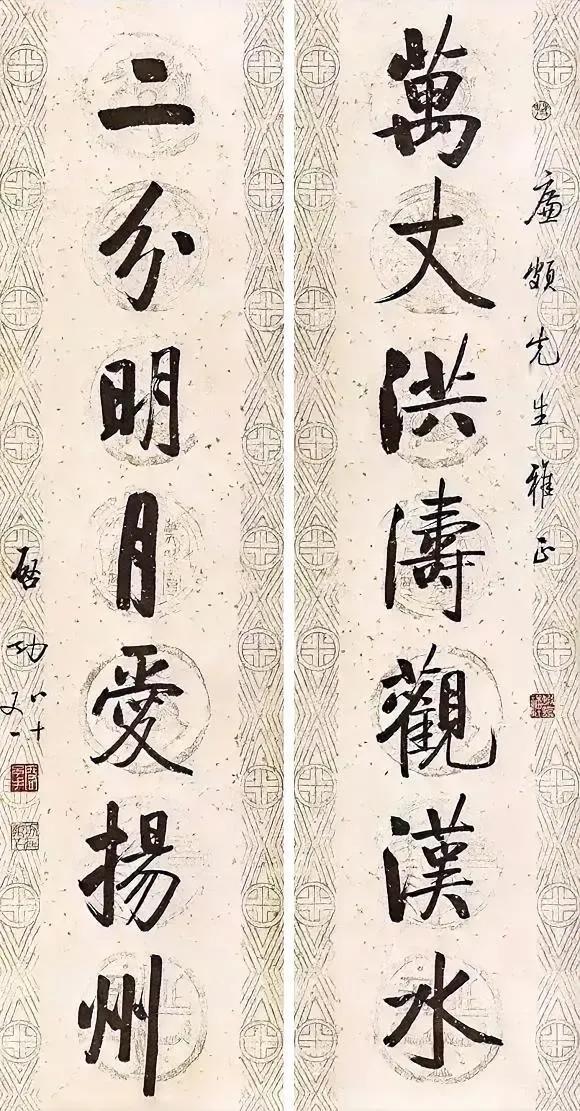 廉頗先生雅正
萬丈洪濤觀漢水
二分明月愛揚州
啓功
八十又一